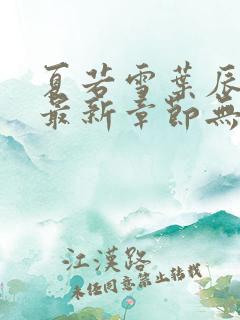 夏若雪葉辰
最新章節無
江漢路
未经同意禁止转载